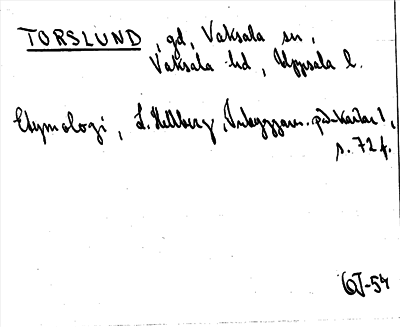 TORSLUND, gd, Vaksala sn,
Vaksala hd, Uppsala l.
Etymologi, L. Hellberg, Inbyggarn. på -karlar 1,
s. 72 f.
GJ-54